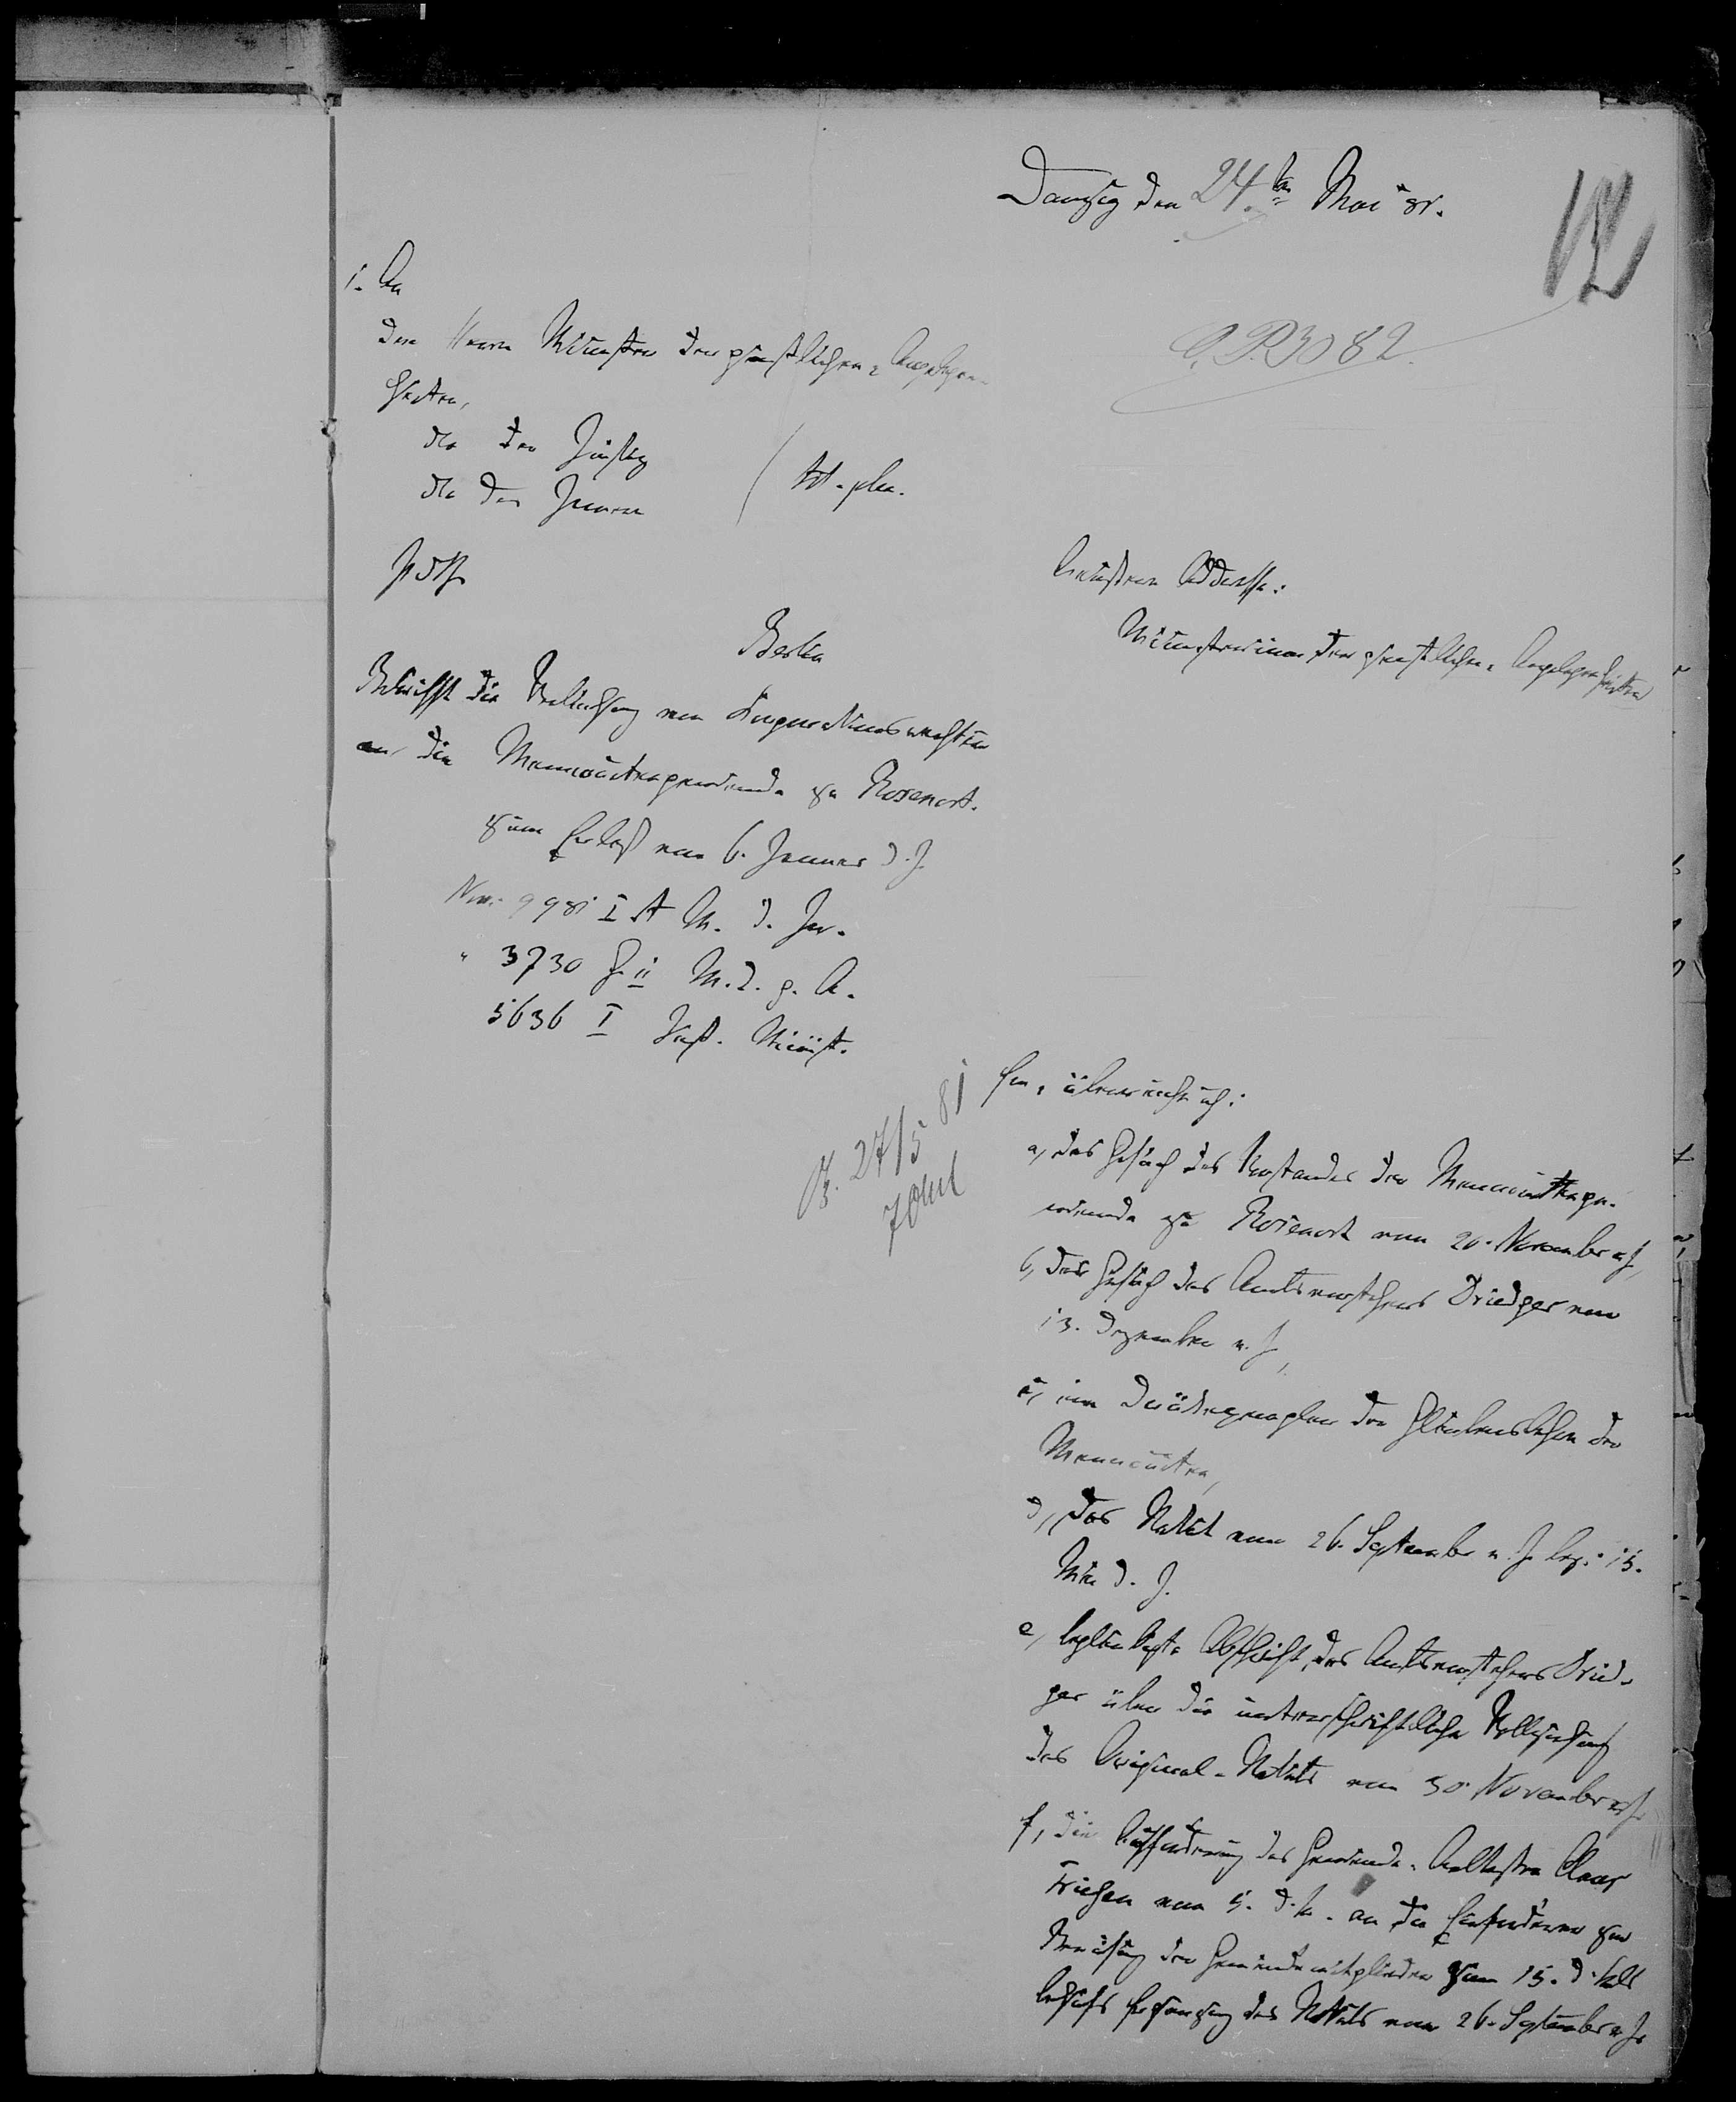 Danzig den 24ten Mai 81.
12
O. P. 3082.
1. An
den Herrn Minister der geistlichen Angelegen-
heiten,
do der Justiz
do des Innern
tit. plen.
Berlin
Äußere Adresse:
Ministerium der geistlichen Angelegenheiten
Betrifft die Verleihung von Korporationsrechten
an die Mennonitengemeinde zu Rosenort.
Zum Erlaß vom 6. Januar d. J.
Nro. 9981 I A M. d. In.
" 3730 G II M. d. g. A.
5636 I Just. Minist.
27/5 81
überreiche ich:
a, das Gesuch des Vorstandes der Mennonitenge-
meinde zu Rosenort vom 20. November v. J,
b, das Gesuch des Amtsvorstehers Driedger vom
13. Dezember v. J,
c, ein Druckexemplar der Glaubenslehre der
Mennoniten,
d, das Statut vom 26. September v. J. bez. 15.
Mai d. J.
e, beglaubigte Abschrift des Amtsvorstehers Dried-
ger über die unterschriftliche Vollziehung
des Original-Statuts vom 30. November v. J.
f, die Aufforderung des Gemeinde-Aeltesten Claas
Friesen vom 5. d. M. an die Einforderer zur
Berufung der Gemeindemitglieder zum 15. d. Mts
behufs Ergänzung des Statuts vom 26. September v. J.